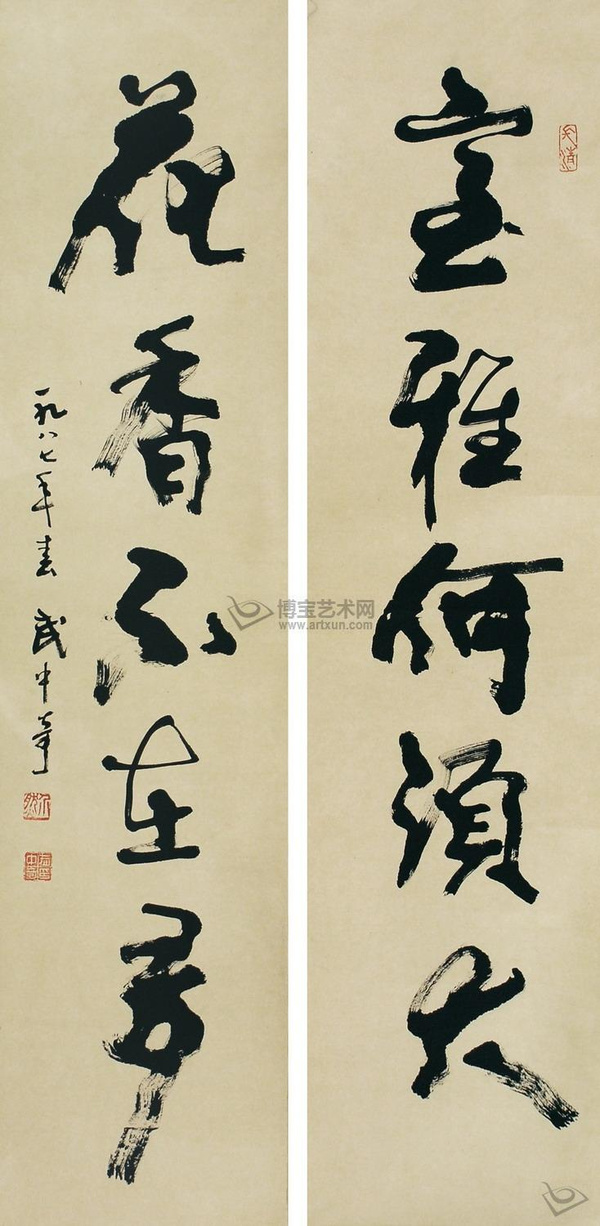 室雅何須大
花香不在多
一九八七年春 武中奇
博宝艺术网
www.artxun.com